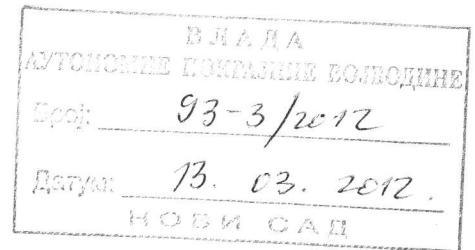 ВЛАДА
АУТОНОМНЕ ПОКРАЈИНЕ ВОЈВОДИНЕ
Број: 93-3/2012
Датум: 13. 03. 2012.
НОВИ САД